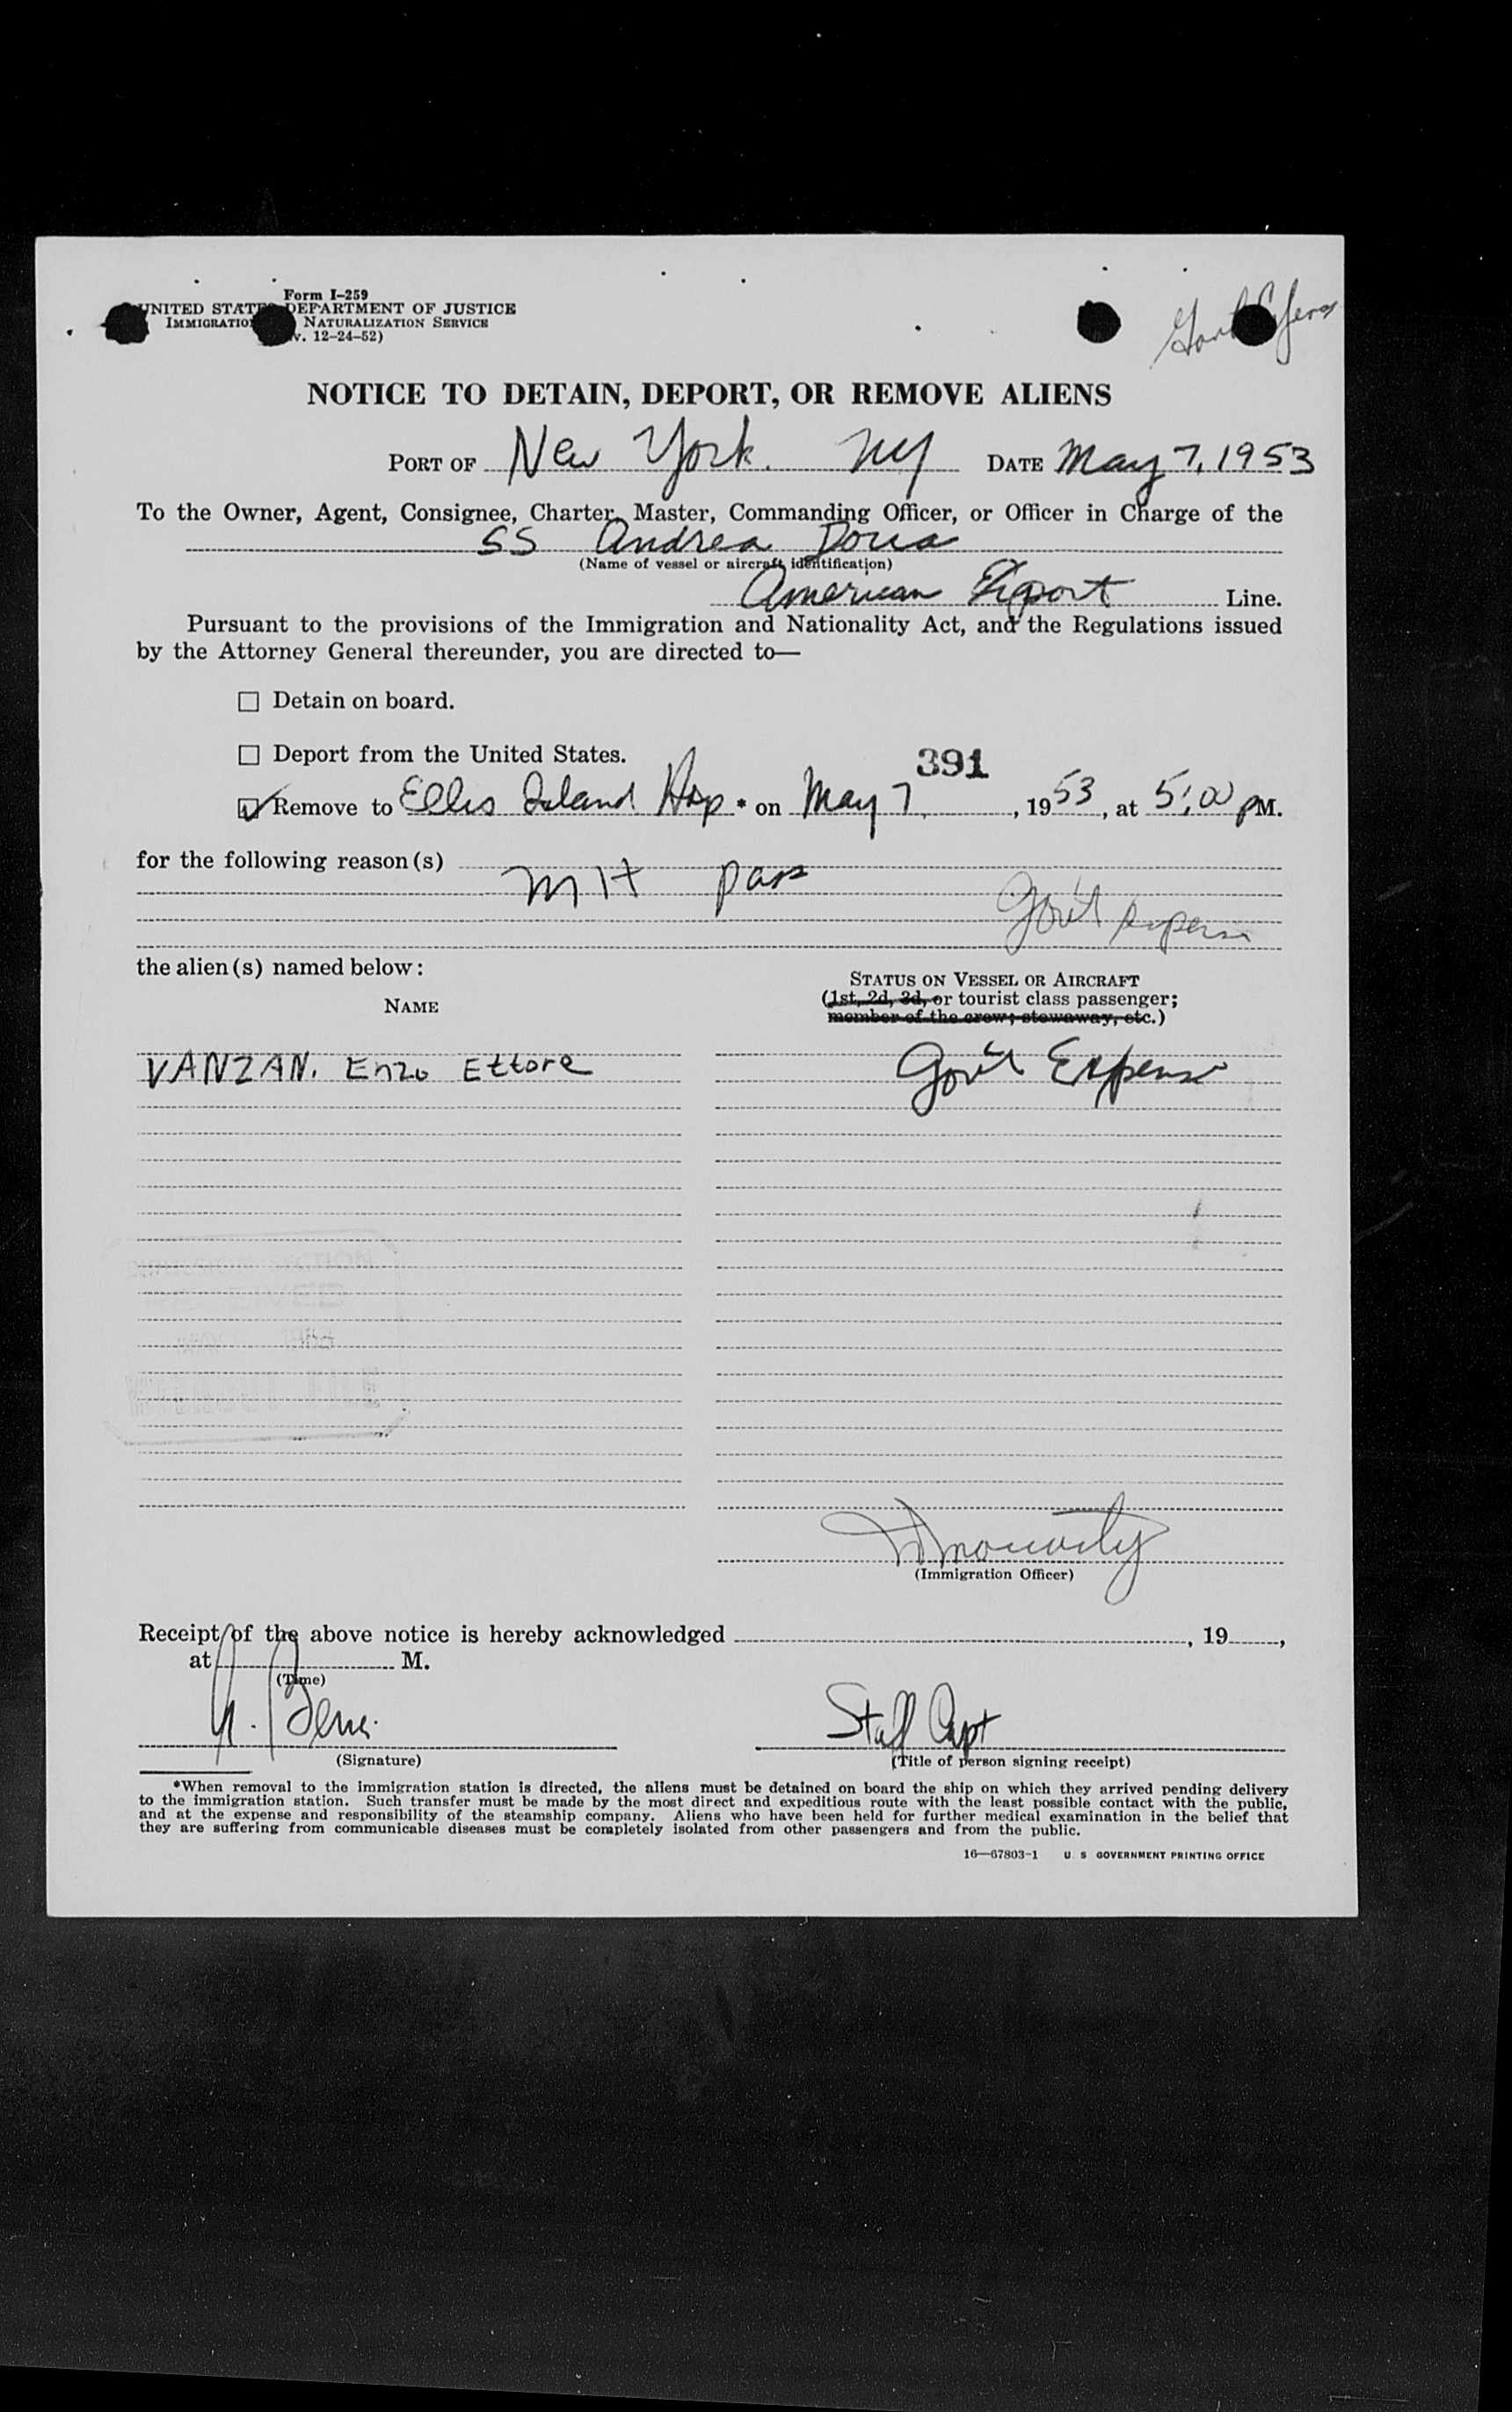 Form I-259
UNITED STATES DEPARTMENT OF JUSTICE
IMMIGRATION NATURALIZATION SERVICE
v. 12-24-52)
NOTICE TO DETAIN, DEPORT, OR REMOVE ALIENS
PORT OF New York. NY DATE May 7, 1953
To the Owner, Agent, Consignee, Charter, Master, Commanding Officer, or Officer in Charge of the
SS Andrea Doria
(Name of vessel or aircraft identification)
American Export Line.
Pursuant to the provisions of the Immigration and Nationality Act, and the Regulations issued
by the Attorney General thereunder, you are directed to—
☐ Detain on board.
☐ Deport from the United States.
391
☑ Remove to Ellis Island Hosp * on May 7, , 1953, at 5:00 PM.
for the following reason(s)
Pass
Gov't Expense
the alien(s) named below:
STATUS ON VESSEL OR AIRCRAFT
(1st, 2d, 3d, or tourist class passenger;
NAME
member of the crew; stowaway, etc.)
VANZAN. Enzo Ettore Gov't Expense
(Immigration Officer)
Receipt of the above notice is hereby acknowledged , 19 ,
at M.
(Time)
Staff Capt
(Signature) (Title of person signing receipt)
*When removal to the immigration station is directed, the aliens must be detained on board the ship on which they arrived pending delivery
to the immigration station. Such transfer must be made by the most direct and expeditious route with the least possible contact with the public,
and at the expense and responsibility of the steamship company. Aliens who have been held for further medical examination in the belief that
they are suffering from communicable diseases must be completely isolated from other passengers and from the public.
16—67803-1 U. S. GOVERNMENT PRINTING OFFICE